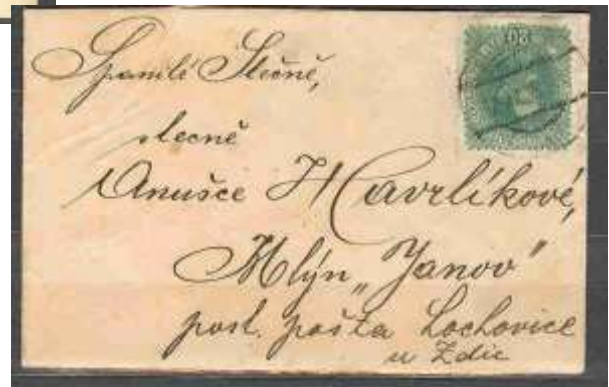 Spanilé Slečně,
slecně
Anušce Havrlíkové,
Mlýn „Janov"
posl. pošta Lochovice
u Zdic